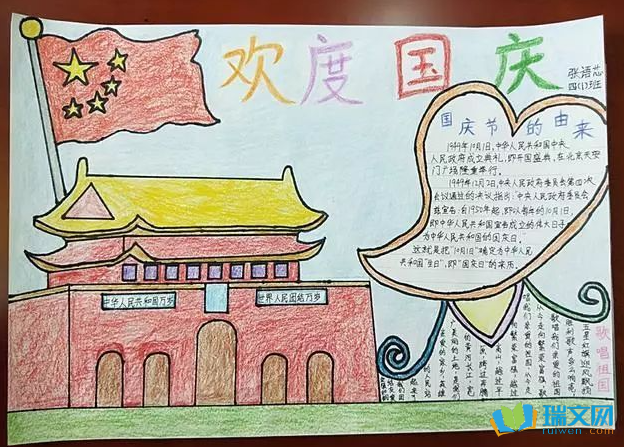 欢度国庆
张语芯
四(1)班
国庆节的由来
1949年10月1日,中华人民共和国中央
人民政府成立典礼,即开国盛典,在北京天安
门广场隆重举行。
1949年12月2日,中央人民政府委员会第四次
会议通过的决议指出:"中央人民政府委员会
兹宣告:自1950年起,即以每年的10月1日,
即中华人民共和国宣告成立的伟大日子,
为中华人民共和国的国庆日。
这就是把"10月1日"确定为中华人民
共和国"生日",即"国庆日"的来历。
中华人民共和国万岁
世界人民团结万岁
歌唱祖国
五星红旗迎风飘扬
胜利歌声多么响亮
歌唱我们亲爱的祖国
从今走向繁荣富强
瑞文网
ruiwen.com